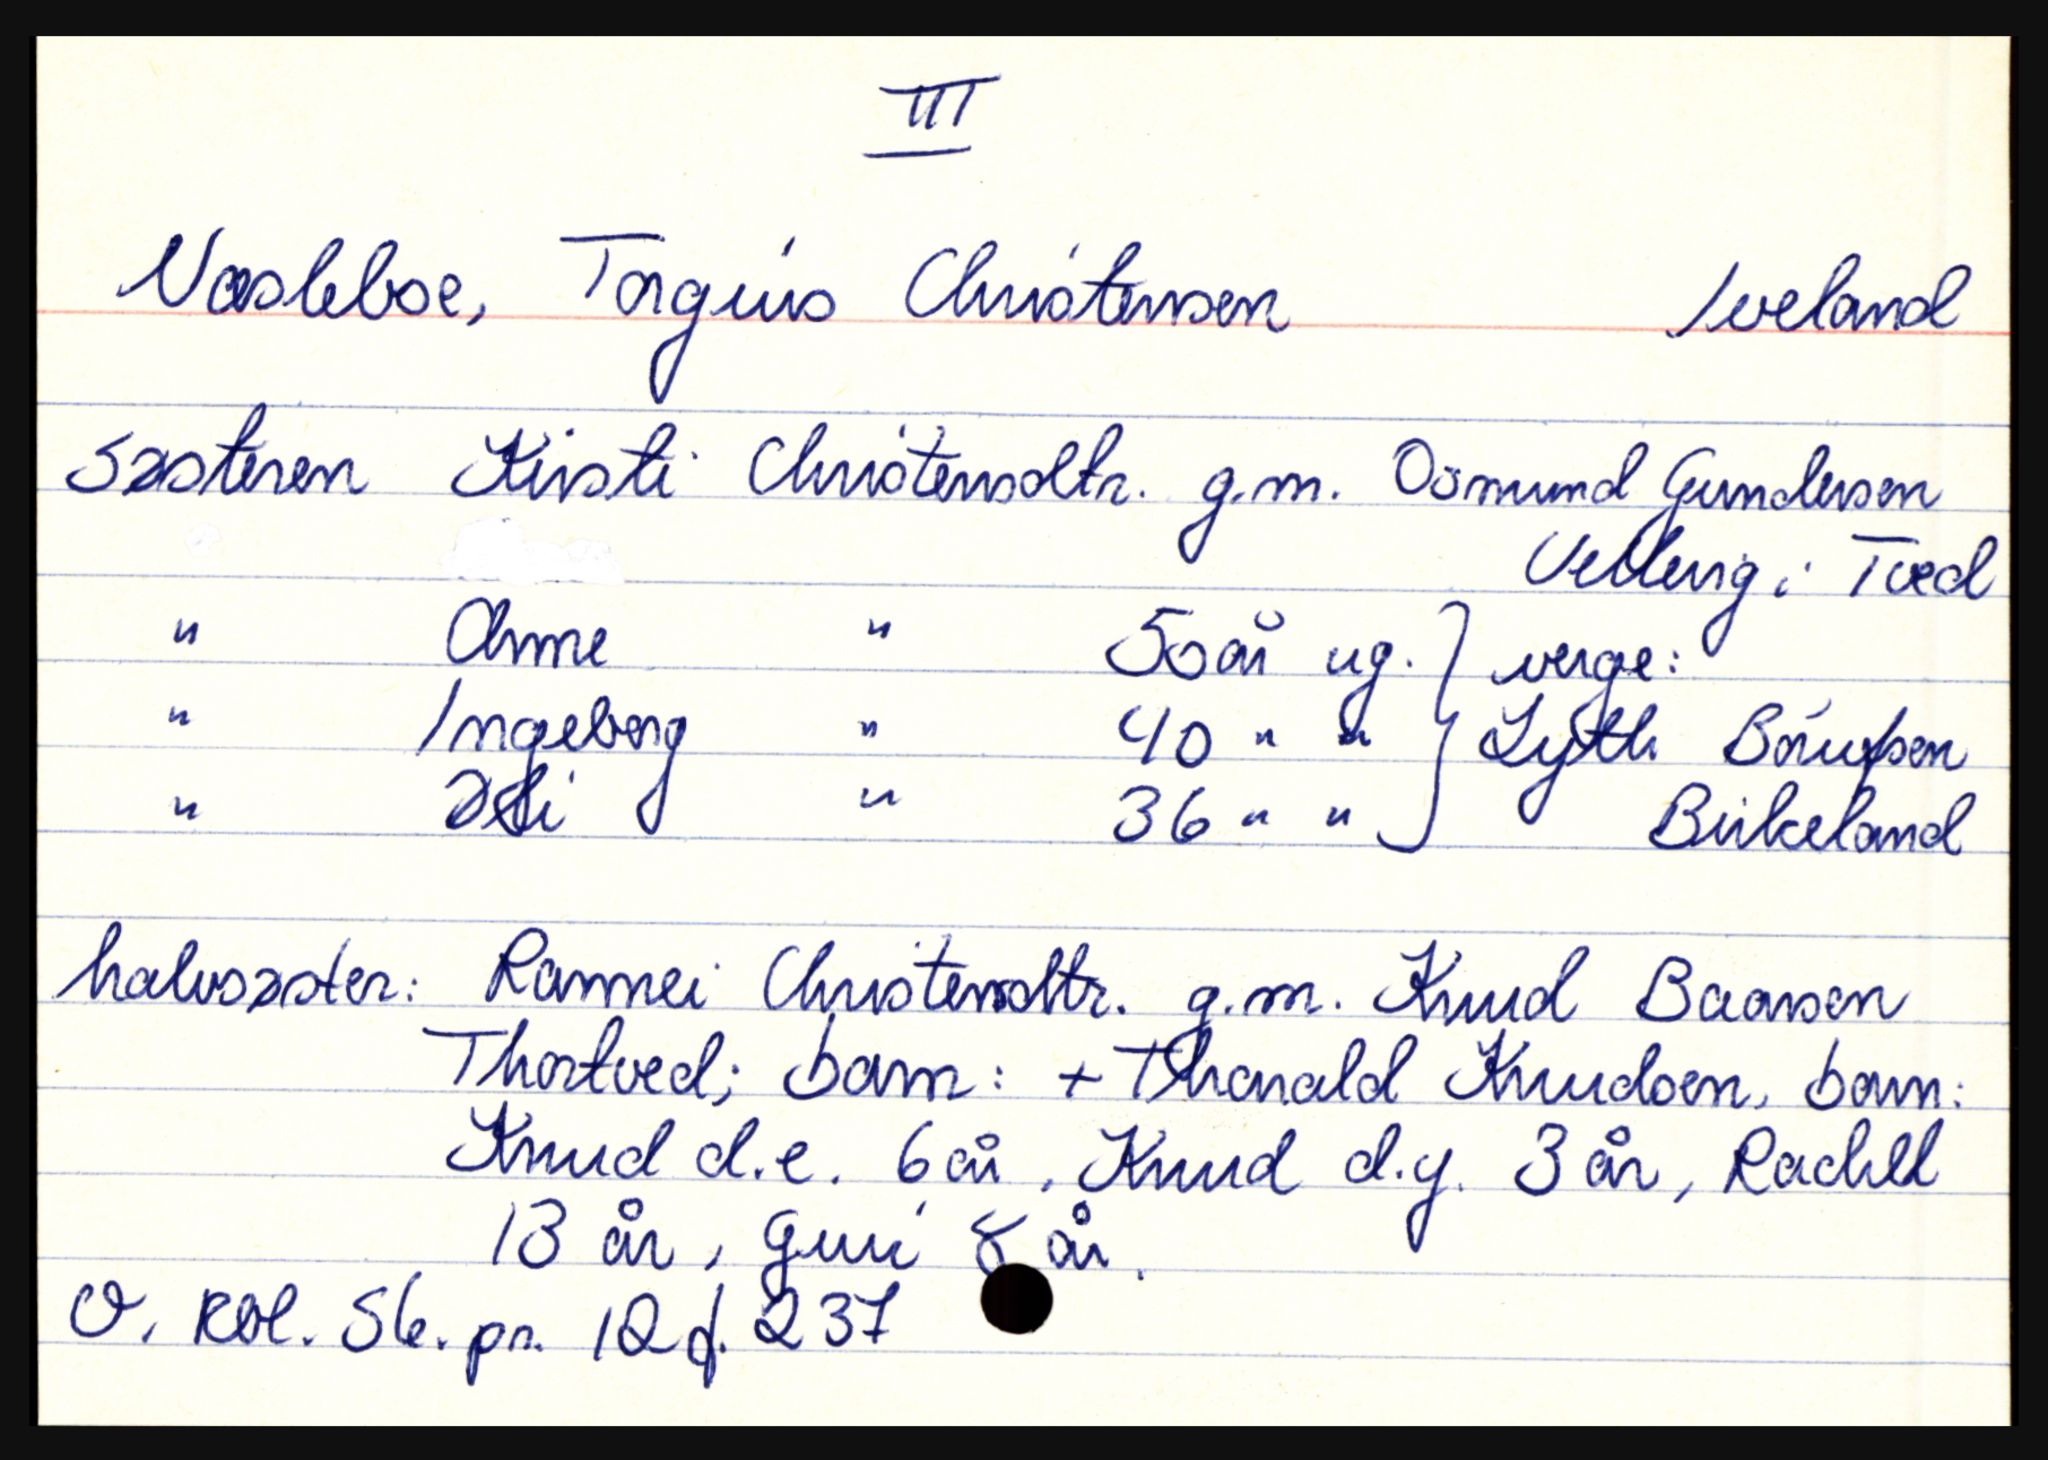 III
Væsleboe, Torgius Christensen Iveland
søsteren Kirsti Christensdtr. g.m. Osmund Gundersen
i Tved
" Anne " 50 år ug. } verge:
" Ingeborg " 40 " " } Lyth
" Østi " 36 " " } Birkeland
halvsøster: Rannei Christensdtr. g.m. Knud Baarsen
Thortved; barn: + Thorvald Knudsen, barn:
Knud d.e. 6 år, Knud d.y. 3 år, Rachel
13 år, Guri 8 år.
O. Rbl. Sk. pr. 12 f. 237